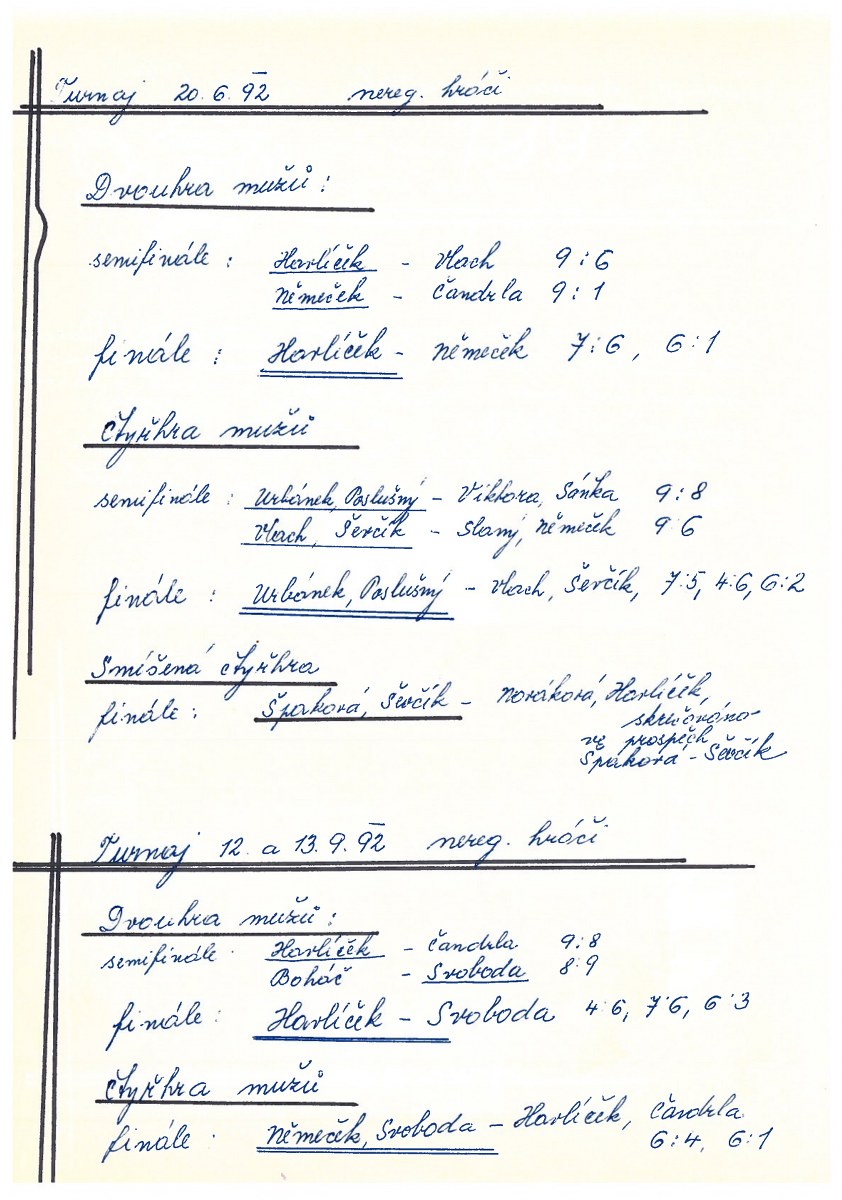 Turnaj 20.6.92 nereg. hráči
Dvouhra mužů:
semifinále: Havlíček - Vlach 9:6
Němeček - Čandrla 9:1
finále: Havlíček - Němeček 7:6, 6:1
Čtyřhra mužů
semifinále: Urbánek, Poslušný - Viktora, Šánka 9:8
Vlach, Ševčík - Slaný, Němeček 9 6
finále: Urbánek, Poslušný - Vlach, Ševčík, 7:5, 4:6, 6:2
Smíšená čtyřhra
finále: Špaková, Ševčík - Nováková, Havlíček,
skrečováno
ve prospěch
Špaková - Ševčík
Turnaj 12. a 13.9.92 nereg. hráči
Dvouhra mužů:
semifinále Havlíček - Čandrla 9:8
Boháč - Svoboda 8:9
finále: Havlíček - Svoboda 4:6, 7:6, 6:3
Čtyřhra mužů
finále Němeček, Svoboda - Havlíček, Čandrla
6:4, 6:1